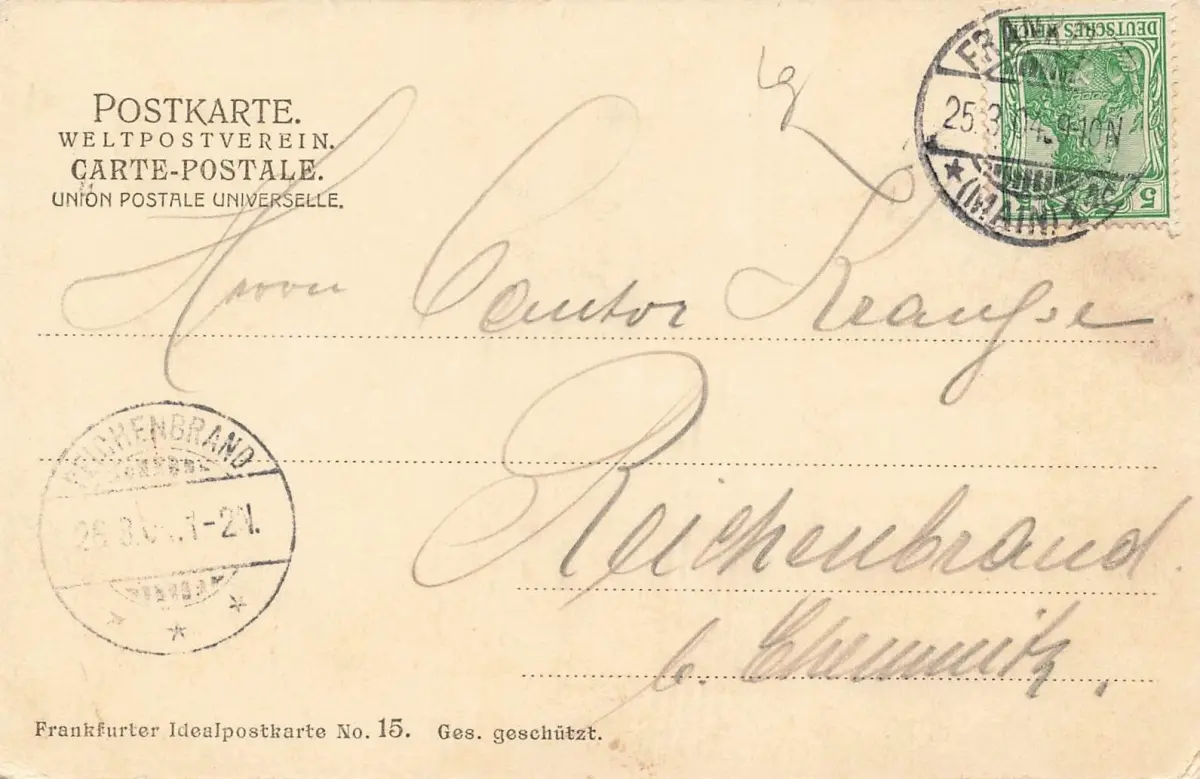 POSTKARTE.
WELTPOSTVEREIN.
CARTE-POSTALE.
UNION POSTALE UNIVERSELLE.
DEUTSCHES REICH
5
25.3.04. 9-10N
★ (MAIN)
Herrn Cantor Krauße
REICHENBRAND
26.3.0 .1-2N.
Reichenbrand
b. Chemnitz,
Frankfurter Idealpostkarte No. 15. Ges. geschützt.